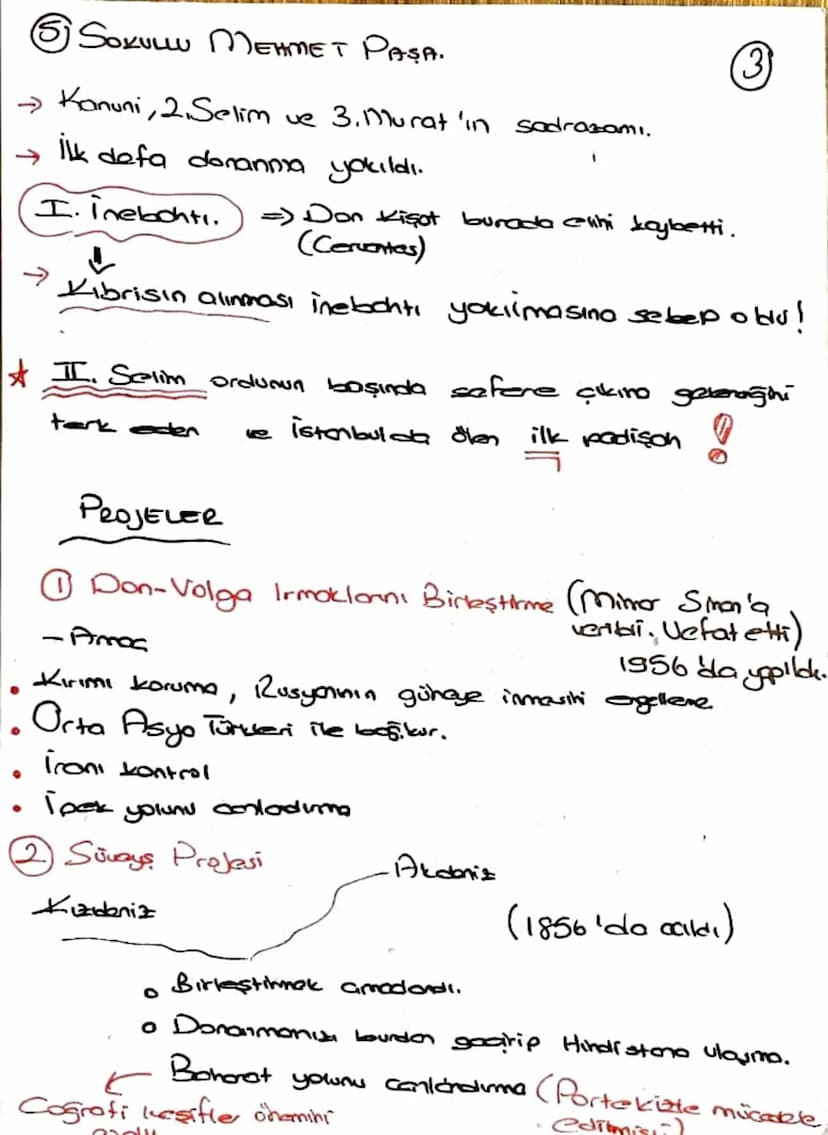 5) SOKULLU MEHMET PAŞA.
3
→ Kanuni, 2.Selim ve 3.Murat'ın sadrazamı.
→ İlk defa donanma yakıldı.
I. İnebahtı. ⇒ Don Kişot burada elini kaybetti.
(Cervantes)
→ Kıbrısın alınması inebahtı yakılmasına sebep oldu!
★ II. Selim ordunun başında sefere çıkma geleneğini
terk eden ve İstanbulda ölen ilk padişah !
PROJELER
① Don-Volga Irmaklarını Birleştirme (Mimar Sinan'a
verildi. Vefat etti)
- Amaç
1956'da yapıldı.
• Kırımı koruma, Rusyanının güneye inmasini engelleme
• Orta Asya Türkleri ile bağ.kur.
• İranı kontrol
• İpek yolunu canladırma
② Süveyş Projesi
Akdeniz
Kızdeniz
(1856'da açıldı)
o Birleştirmek amaçlandı.
o Donanmamızı burdan geçirip Hindistana ulaşma.
Baharat yolunu canlandırma (Portekizle mücadele
Coğrafi keşifler önemini
edilmiş